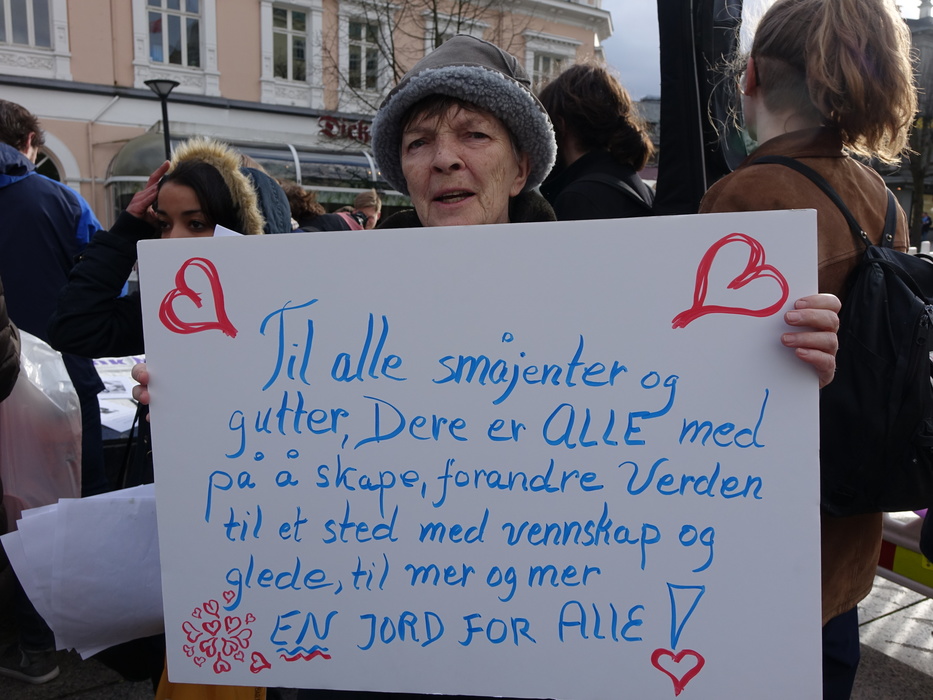 Til alle småjenter og
gutter, Dere er ALLE med
på å skape, forandre Verden
til et sted med vennskap og
glede, til mer og mer
EN JORD FOR ALLE!